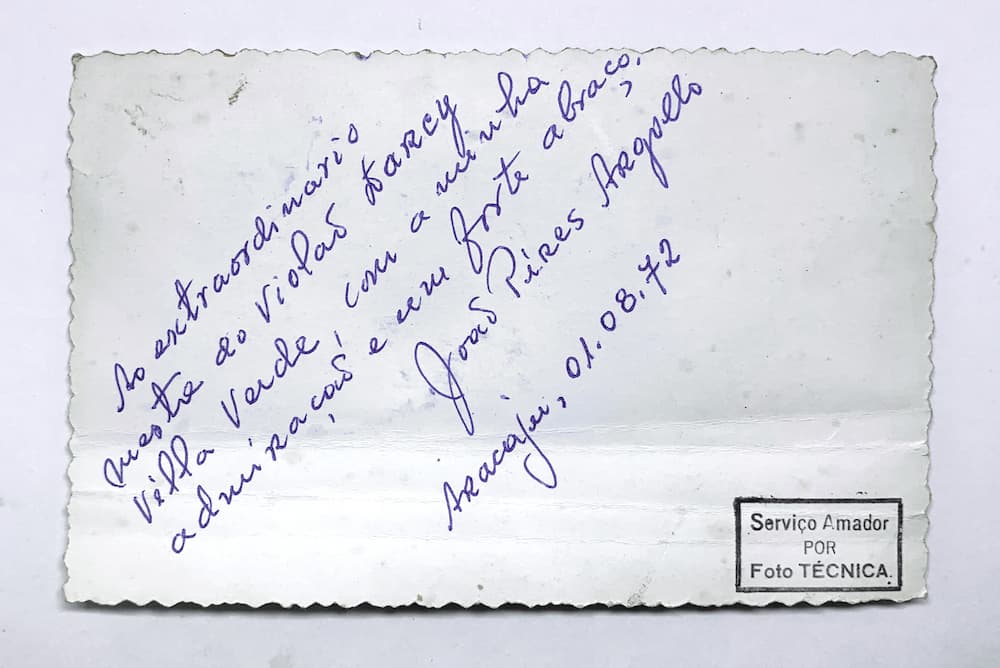 Ao extraordinário
mestre do violão Darcy
Villa Verde, com a minha
admiração e um forte abraço,
João Pires Argollo
Aracaju, 01.08.72
Serviço Amador
POR
Foto TÉCNICA.